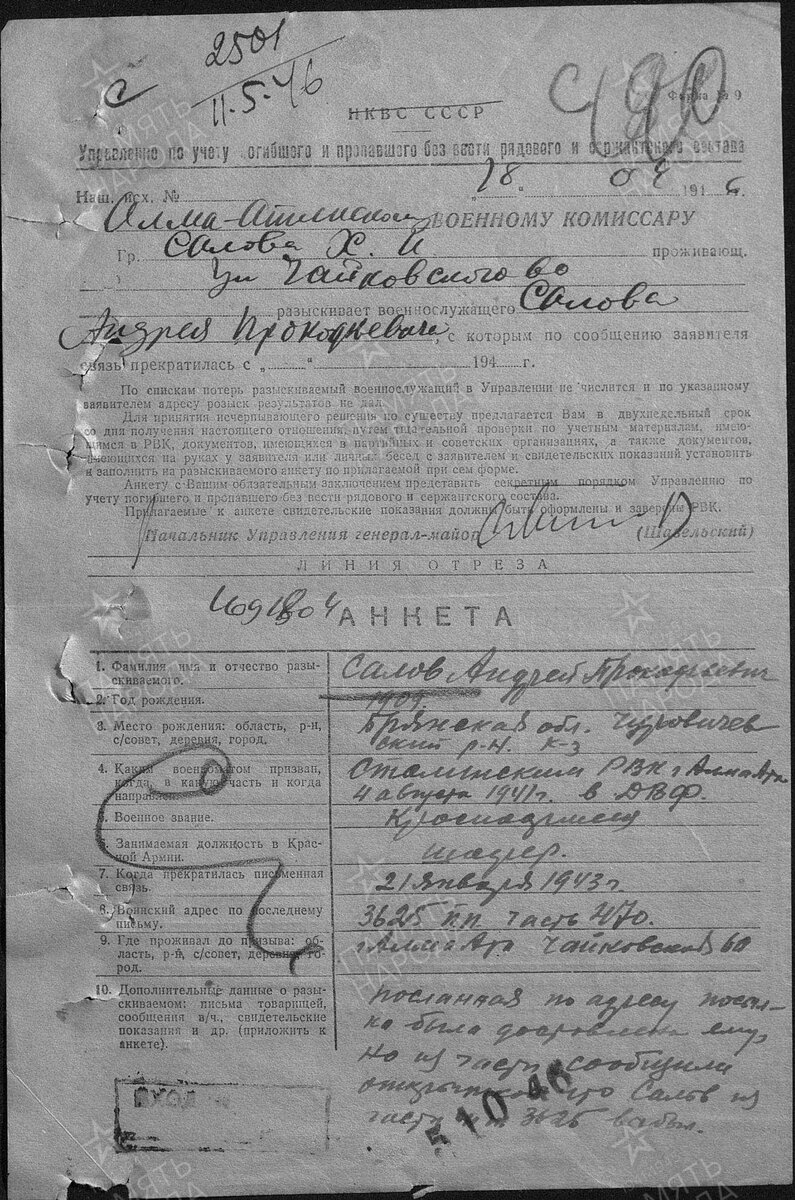 2501
11.5.46
Форма № 9
НКВС СССР
Управление по учету погибшего и пропавшего без вести рядового и сержантского состава
Наш. исх. №
"18" 04 1946 г.
Алма-Атинскому ВОЕННОМУ КОМИССАРУ
Гр. Салова Х. И проживающ.
ул Чайковского 60
разыскивает военнослужащего Салова
Андрея Прокофьевича, с которым по сообщению заявителя
связь прекратилась с „ " 194 г.
По спискам потерь разыскиваемый военнослужащий в Управлении не числится и по указанному
заявителем адресу розыск результатов не дал.
Для принятия исчерпывающего решения по существу предлагается Вам в двухнедельный срок
со дня получения настоящего отношения, путем тщательной проверки по учетным материалам, имею-
щимся в РВК, документов, имеющихся в партийных и советских организациях, а также документов,
имеющихся на руках у заявителя или личных бесед с заявителем и свидетельских показаний установить
и заполнить на разыскиваемого анкету по прилагаемой при сем форме.
Анкету с Вашим обязательным заключением представить секретным порядком Управлению по
учету погибшего и пропавшего без вести рядового и сержантского состава.
Прилагаемые к анкете свидетельские показания должны быть оформлены и заверены РВК.
Начальник Управления генерал-майор (Шавельский)
ЛИНИЯ ОТРЕЗА
АНКЕТА
1. Фамилия, имя и отчество разы-
скиваемого.
Салов Андрей Прокофьевич
2. Год рождения.
1909
3. Место рождения: область, р-н,
с/совет, деревня, город.
Брянская обл. Чуровичев
ский р-н. к-з
4. Каким военкоматом призван,
когда, в какую часть и когда
направлен.
Сталинским РВК г Алма Ата
4 августа 1941 г. в ДВФ.
5. Военное звание.
Красноармеец
6. Занимаемая должность в Крас-
ной Армии.
шофер.
7. Когда прекратилась письменная
связь.
21 января 1943 г.
8. Воинский адрес по последнему
письму.
3625 пп часть 470.
9. Где проживал до призыва: об-
ласть, р-н, с/совет, деревня, го-
род.
г Алма Ата Чайковская 60
10. Дополнительные данные о разы-
скиваемом: письма товарищей,
сообщения в/ч., свидетельские
показания и др. (приложить к
анкете).
посланная по адресу посыл-
ка была доставлена ему,
но из части сообщили
открыткой что Салов из
части 3625 выбыл.
ВХОД
5 10 46
ПАМЯТЬ
НАРОДА